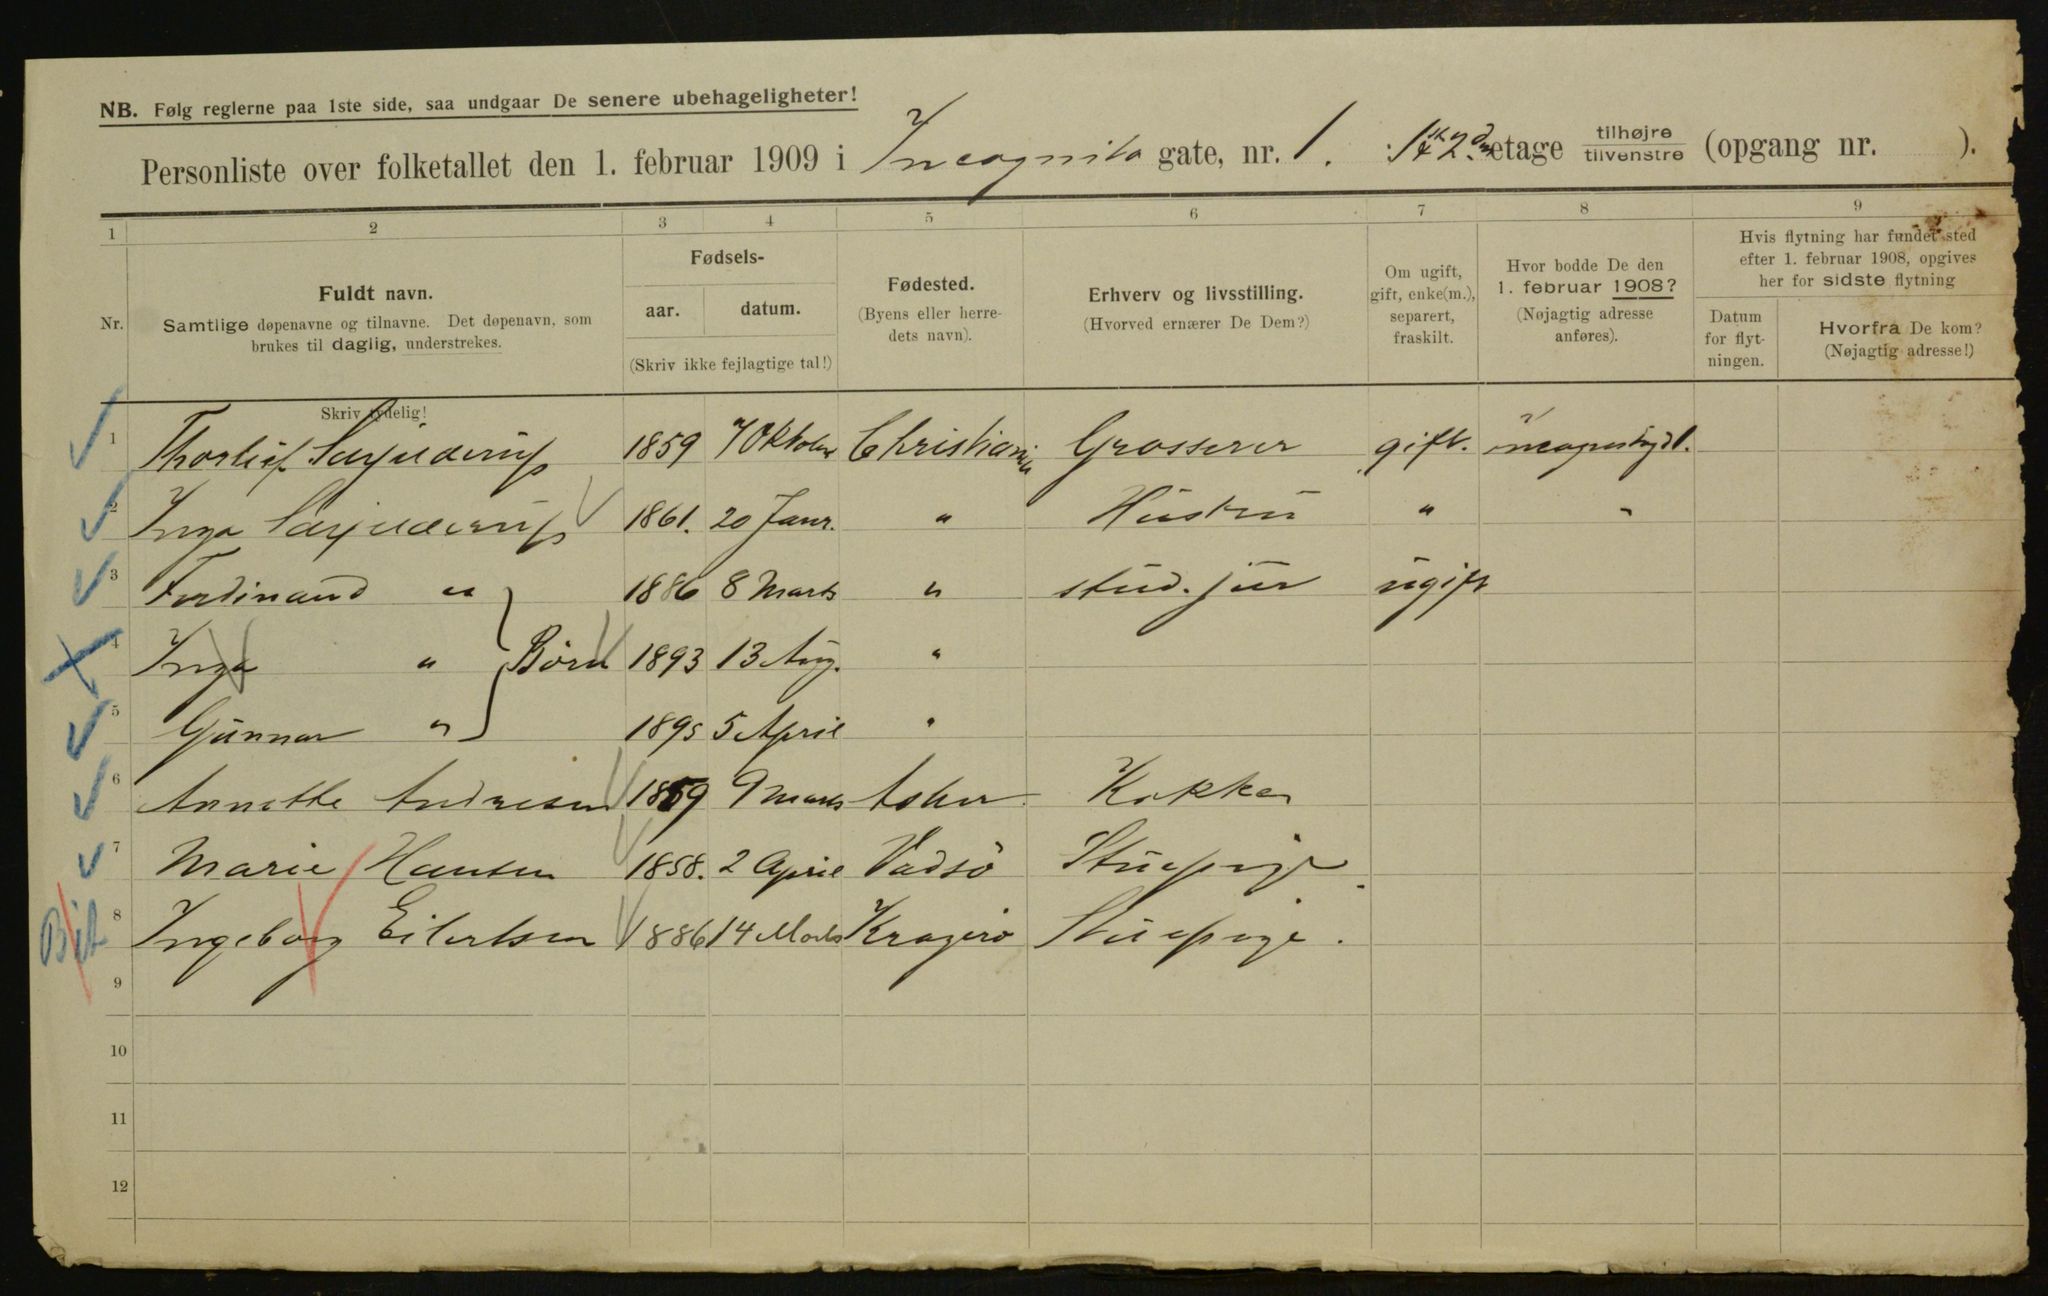 NB. Følg reglerne paa 1ste side, saa undgaar De senere ubehageligheter!
Personliste over folketallet den 1. februar 1909 i Incognito gate, nr. 1. 1st & 2den etage tilhøjre tilvenstre (opgang nr. ).
1 2 3 4 5 6 7 8 9
Nr.
Fuldt navn.
Samtlige døpenavne og tilnavne. Det døpenavn, som
brukes til daglig, understrekes.
Fødsels-
aar. datum.
(Skriv ikke fejlagtige tal!)
Fødested.
(Byens eller herre-
dets navn).
Erhverv og livsstilling.
(Hvorved ernærer De Dem?)
Om ugift,
gift, enke(m.),
separert,
fraskilt.
Hvor bodde De den
1. februar 1908?
(Nøjagtig adresse
anføres).
Hvis flytning har fundet sted
efter 1. februar 1908, opgives
her for sidste flytning
Datum
for flyt-
ningen.
Hvorfra De kom?
(Nøjagtig adresse!)
Skriv tydelig!
1 Thorleif 1859 7 Oktober Christiania Grosserer gift.
2 Inga 1861. 20 Janr. " Hustru " "
3 Ferdinand " 1886 8 Marts " stud. jur ugift
4 Inga " Børn 1893 13 Aug. "
5 Gunnar " 1895 5 April "
6 Annette Andresen 1859 9 Marts Asker Kokke
7 Marie Hansen 1858. 2 April Vadsö Stuepige.
8 Ingeborg Eilertsen 1886 14 Marts Kragerö Stuepige.
9
10
11
12